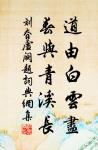 道由白雲盡
春與青溪長
劉眘虛闕題詞與網集